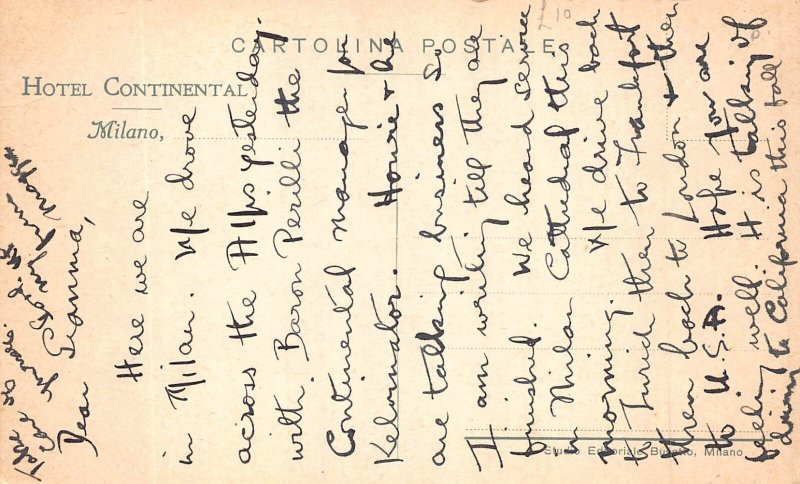 CARTOLINA POSTALE
HOTEL CONTINENTAL
Milano,
£10
Dear Gramma,
Here we are
in Milan. We drove
across the Alps yesterday.
with Baron Perilli the
Continental manager for
Kelvinator. Howie + he
are talking business so
I am writing till they are
finished. We heard service
in Milan Cathedral this
morning. We drive back
to Zurich then to Frankfort
then back to London + then
to U.S.A. Hope you are
feeling well. H is talking of
driving to California this fall
Take so
care
God
Studio Editoriale Busetto, Milano